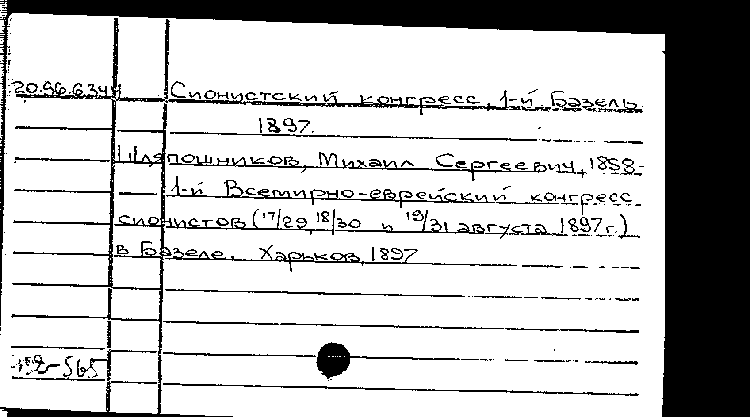 20.96.6344 Сионистский конгресс, 1-й, Базель
1897.
Шляпошников, Михаил Сергеевич, 1858-
1-й Всемирно-еврейский конгресс
сионистов (17/29, 18/30 и 19/31 августа 1897 г.)
в Базеле. Харьков, 1897
-565